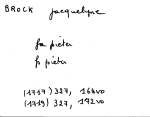 BROCK Jacqueline
fa pieter
fs pieter
(1717) 327, 164vo
(1719) 327, 192vo